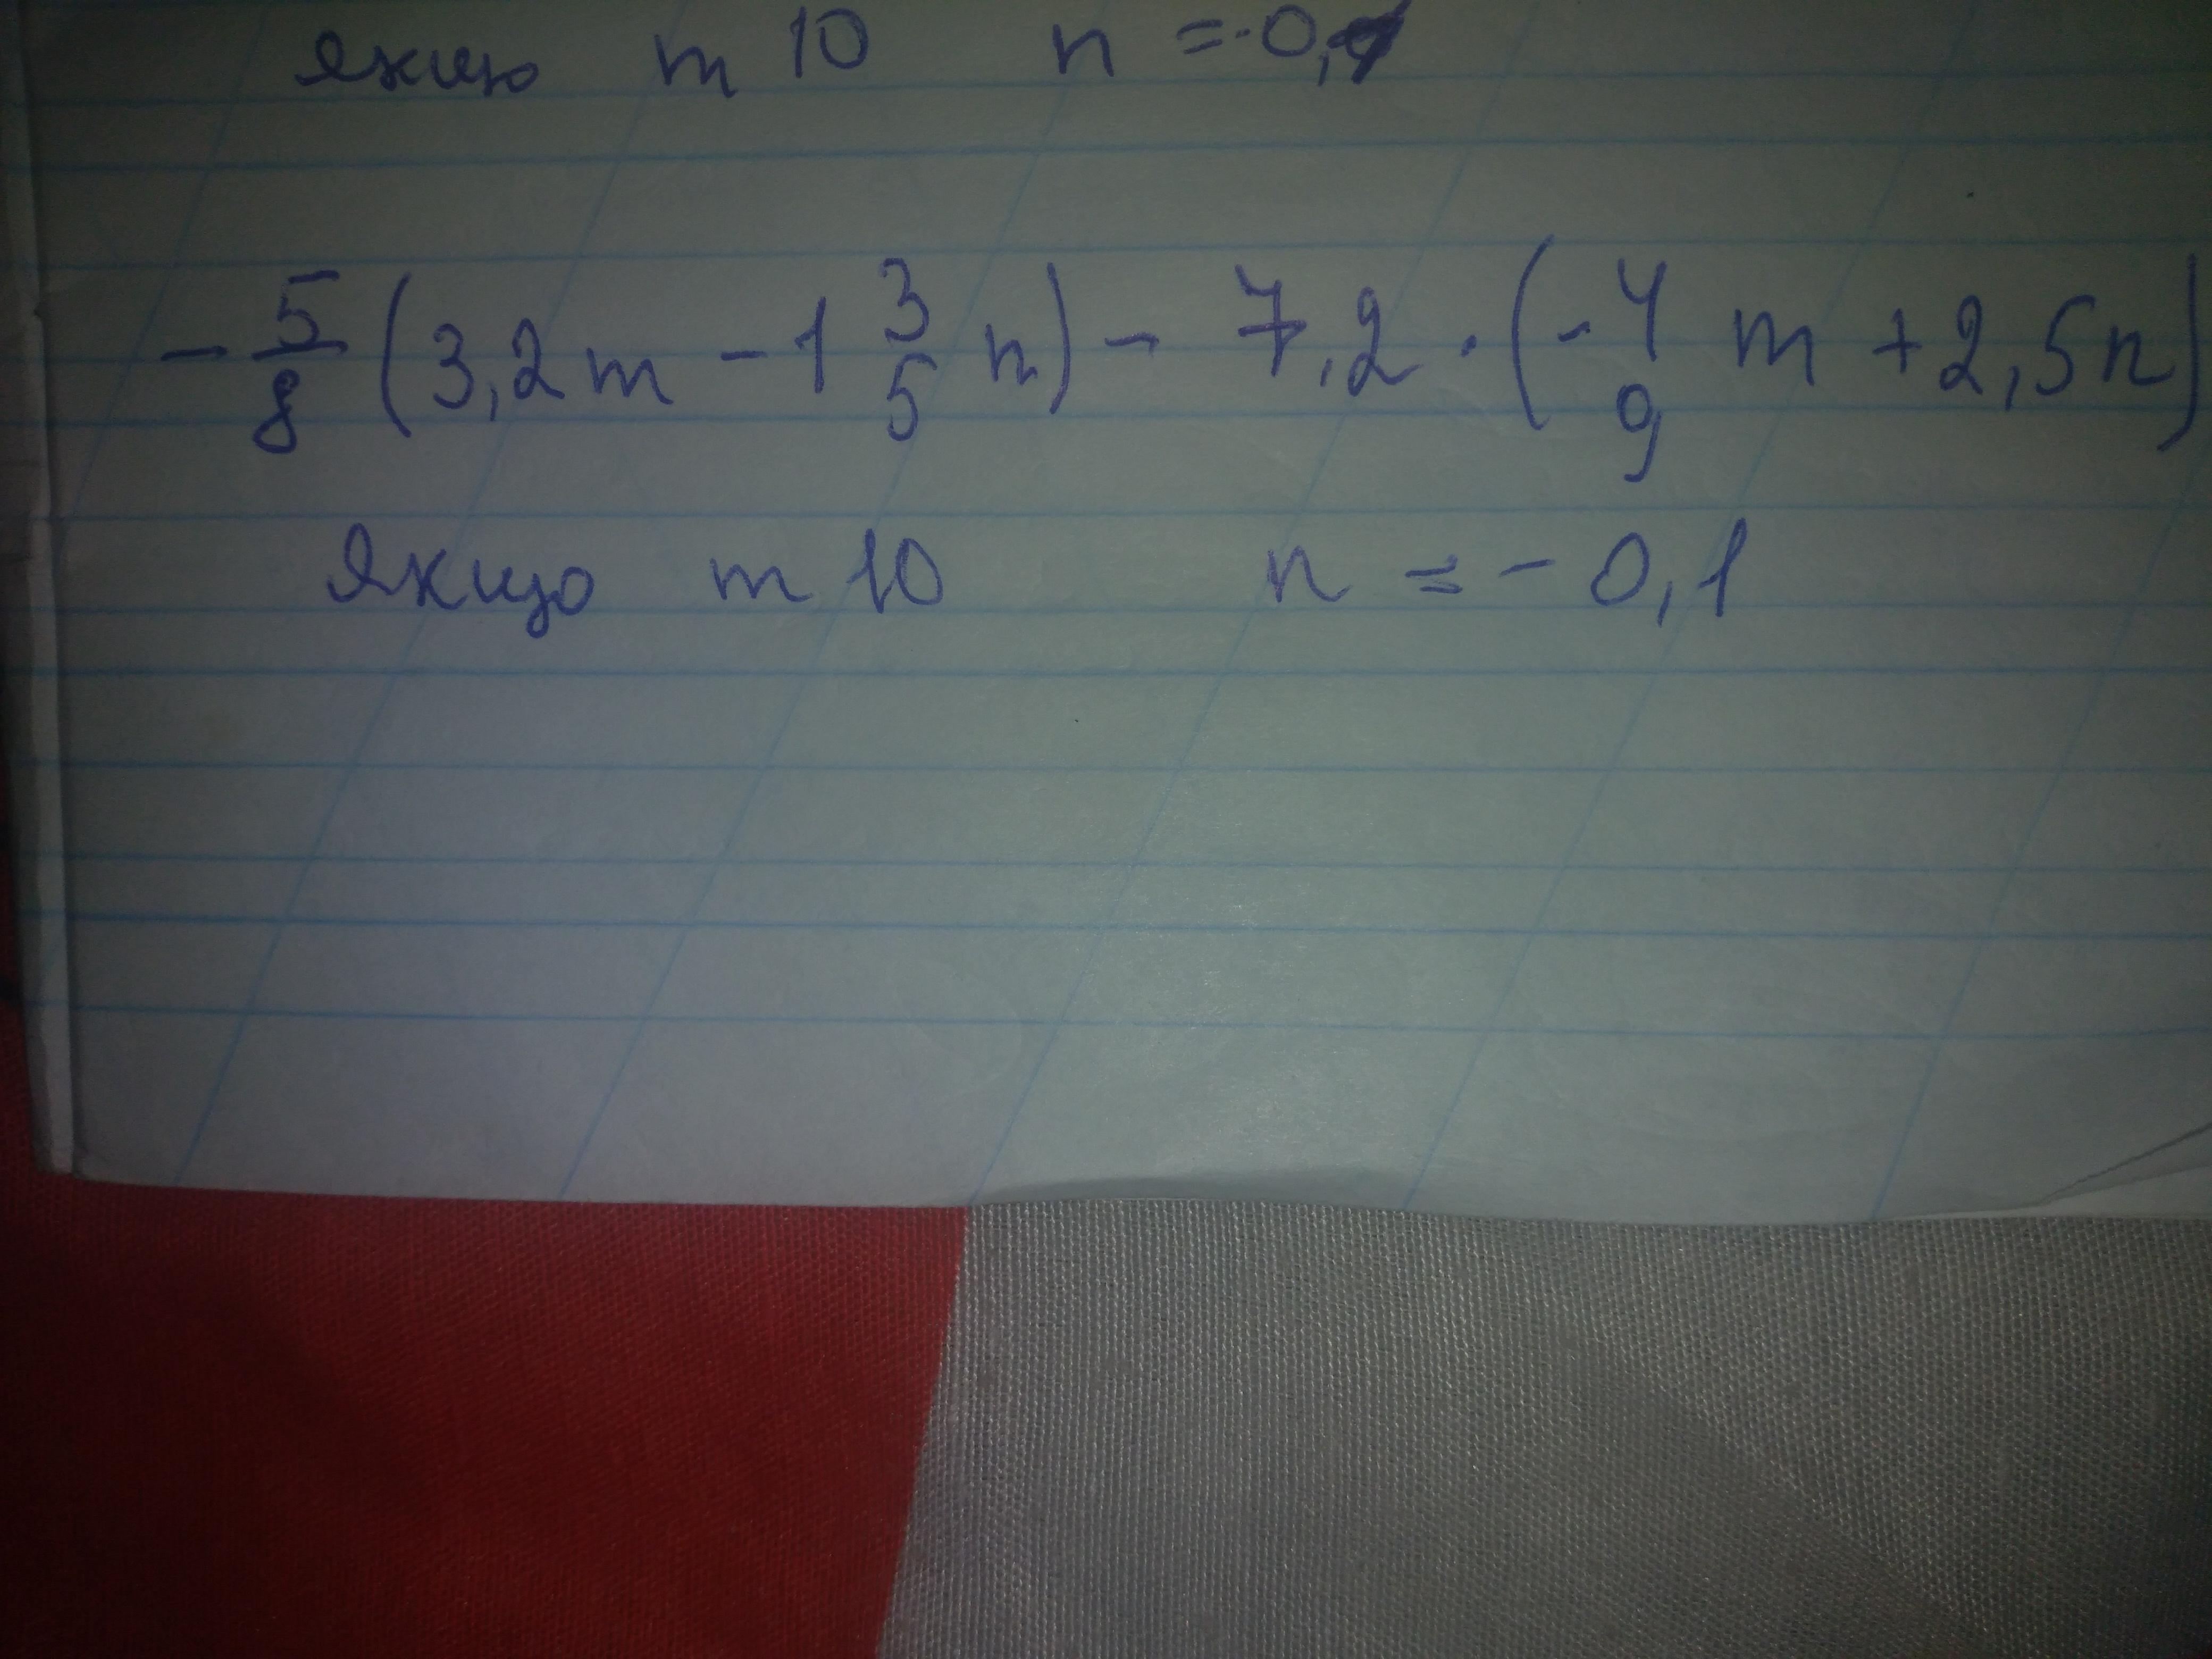 якщо m 10 n = -0,1
- 5/8 (3,2m - 1 3/5 n) - 7,2 · (- 4/9 m + 2,5n)
Якщо m 10 n = - 0,1